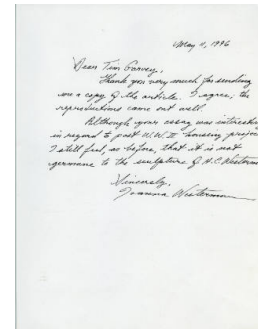 May 11, 1996
Dear Tim Garvey,
Thank you very much for sending
me a copy of the article. I agree; the
reproductions came out well.
Although your essay was interesting
in regard to post W.W. II housing projects
I still feel, as before, that it is not
germane to the sculpture of H.C. Westermann
Sincerely,
Joanna Westermann